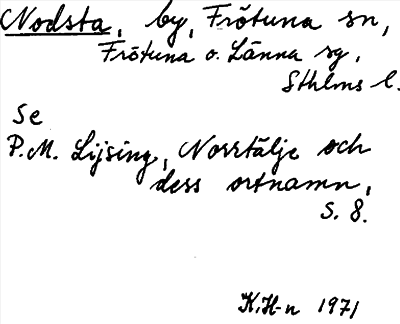 Nodsta, by, Frötuna sn,
Frötuna o. Länna sg,
Sthlms l.
Se
P.M. Lijsing, Norrtälje och
dess ortnamn,
S. 8.
K.H-n 1971